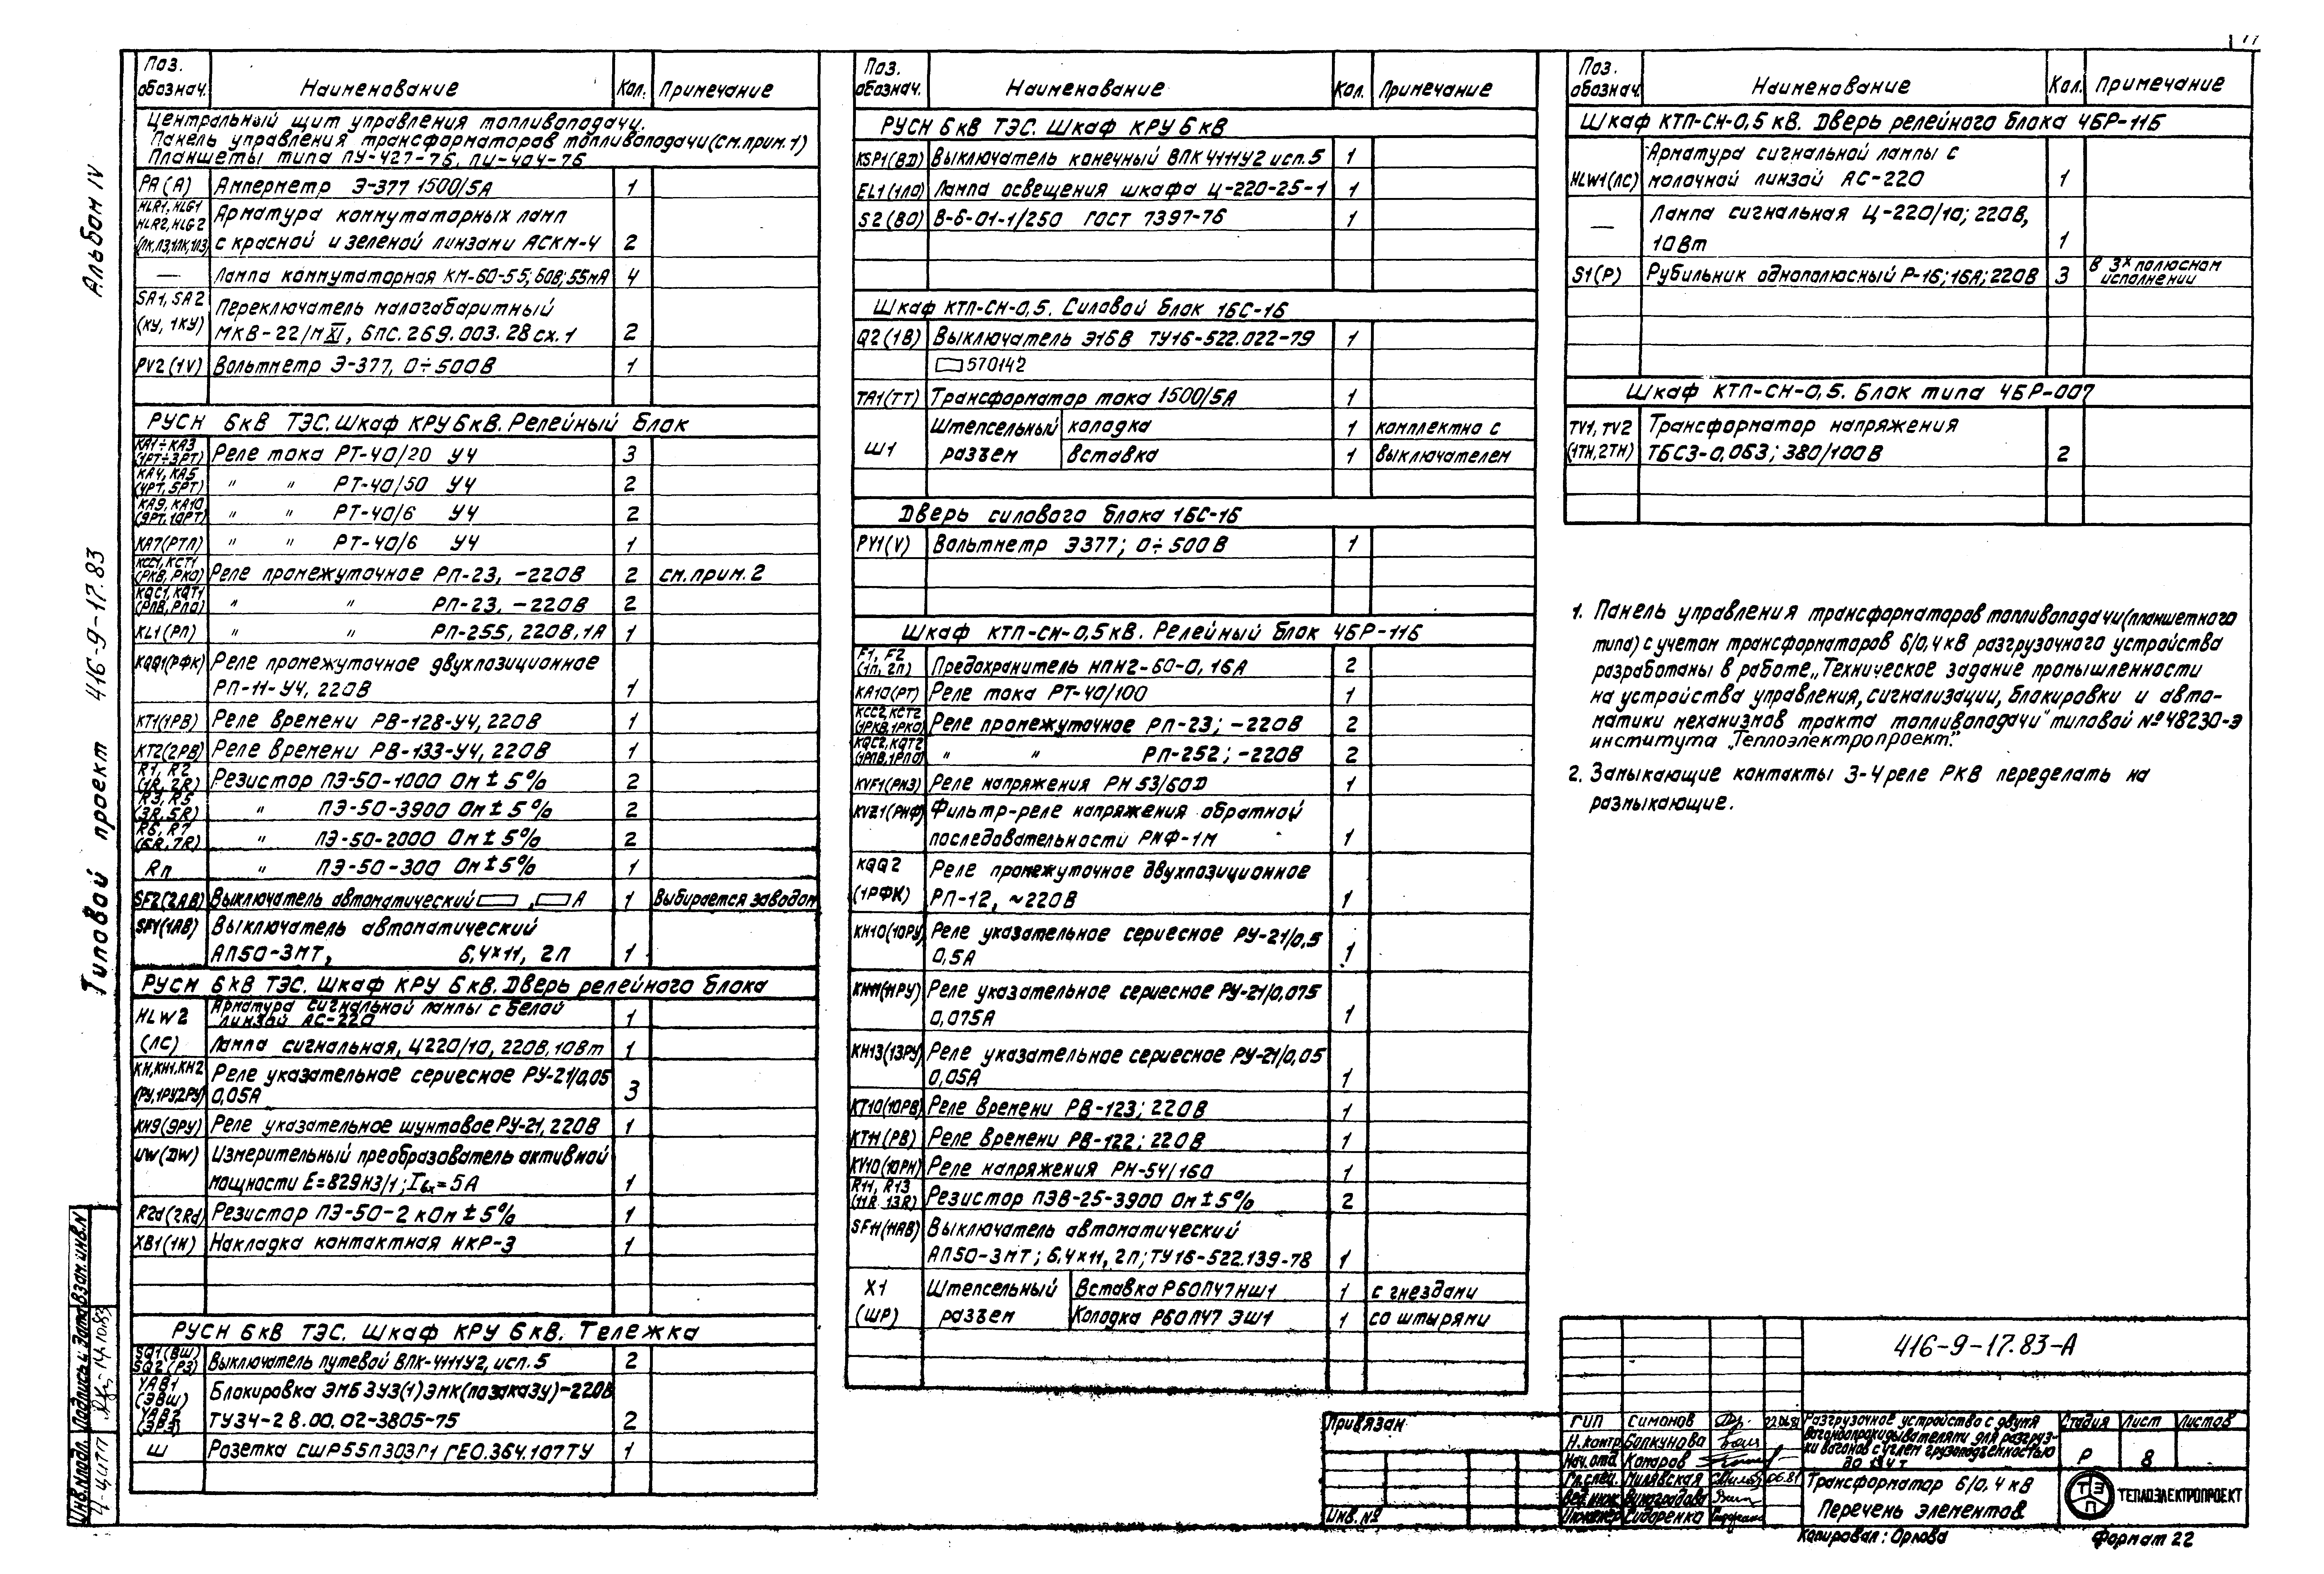 Альбом IV
Типовой проект 416-9-17.83
Поз. обознач. Наименование Кол. Примечание
Центральный щит управления топливоподачи.
Панель управления трансформаторов топливоподачи (см. прим. 1)
Планшеты типа ПУ-427-76, ПУ-404-76
PA (A) Амперметр Э-377 1500/5А 1
HLR1, HLG1 Арматура коммутаторных ламп
HLR2, HLG2
(ЛК,ЛЗ,1ЛК,1ЛЗ) с красной и зеленой линзами АСКМ-4 2
— Лампа коммутаторная КМ-60-55; 60В; 55мА 4
SA1, SA2 Переключатель малогабаритный
(КУ, 1КУ) МКВ-22/М XI, 6ПС. 269.003.28 сх. 1 2
PV2 (1V) Вольтметр Э-377, 0÷500В 1
РУСН 6кВ ТЭС. Шкаф КРУ 6кВ. Релейный блок
KA1÷KA3
(1РТ÷3РТ) Реле тока РТ-40/20 У4 3
KA4, KA5
(4РТ, 5РТ) " " РТ-40/50 У4 2
KA9, KA10
(9РТ, 10РТ) " " РТ-40/6 У4 2
KA7(РТП) " " РТ-40/6 У4 1
KCC1, KCT1
(РКВ, РКО) Реле промежуточное РП-23, –220В 2 см. прим. 2
KQC1, KQT1
(РПВ, РПО) " " РП-23, –220В 2
KL1 (РП) " " РП-255, 220В, 1А 1
KQQ1(РФК) Реле промежуточное двухпозиционное
РП-11-У4, 220В 1
KT1(1РВ) Реле времени РВ-128-У4, 220В 1
KT2(2РВ) Реле времени РВ-133-У4, 220В 1
R1, R2
(1R, 2R) Резистор ПЭ-50-1000 Ом ± 5% 2
R3, R5
(3R, 5R) " ПЭ-50-3900 Ом ± 5% 2
R6, R7
(6R, 7R) " ПЭ-50-2000 Ом ± 5% 2
Rп " ПЭ-50-300 Ом ± 5% 1
SF2(2АВ) Выключатель автоматический ▭ , ▭ А 1 Выбирается заводом
SF1(1АВ) Выключатель автоматический
АП50-3МТ, 6,4×11, 2П 1
РУСН 6кВ ТЭС. Шкаф КРУ 6кВ. Дверь релейного блока
HLW2 Арматура сигнальной лампы с белой
линзой АС-220 1
(ЛС) Лампа сигнальная, Ц220/10, 220В, 10Вт 1
KH, KH1, KH2 Реле указательное сериесное РУ-21/0,05
(РУ,1РУ,2РУ) 0,05А 3
KH9(9РУ) Реле указательное шунтовое РУ-21, 220В 1
UW(DW) Измерительный преобразователь активной
мощности Е=829Н3/1; Iвх=5А 1
R2d(2Rd) Резистор ПЭ-50-2 кОм ± 5% 1
XB1(1Н) Накладка контактная НКР-3 1
РУСН 6кВ ТЭС. Шкаф КРУ 6кВ. Тележка
SQ1(ВШ)
SQ2(РЗ) Выключатель путевой ВПК-4111У2, исп. 5 2
YAB1
(ЭВШ) Блокировка ЭМБЗУЗ(1)ЭМК(по заказу)–220В
YAB2
(ЭРЗ) ТУ34-28.00.02-3805-75 2
Ш Розетка СШР55П30ЭГ1 ГЕО.364.107ТУ 1
Поз. обознач. Наименование Кол. Примечание
РУСН 6кВ ТЭС. Шкаф КРУ 6кВ
KSP1(ВД) Выключатель конечный ВПК 4111У2 исп. 5 1
EL1(1ЛО) Лампа освещения шкафа Ц-220-25-1 1
S2 (ВО) В-6-01-1/250 ГОСТ 7397-76 1
Шкаф КТП-СН-0,5. Силовой блок 16С-16
Q2 (1В) Выключатель Э16В ТУ16-522.022-79 1
▭570142
TA1(ТТ) Трансформатор тока 1500/5А 1
Ш1 Штепсельный колодка 1 комплектно с
разъем вставка 1 выключателем
Дверь силового блока 16С-16
PV1(V) Вольтметр Э377; 0÷500В 1
Шкаф КТП-СН-0,5кВ. Релейный блок 4БР-116
F1, F2
(1П, 2П) Предохранитель НПН2-60-0, 16А 2
KA10(РТ) Реле тока РТ-40/100 1
KCC2, KCT2
(1РКВ, 1РКО) Реле промежуточное РП-23; –220В 2
KQC2, KQT2
(1РПВ, 1РПО) " " РП-252; –220В 2
KVF1(РНЗ) Реле напряжения РН 53/60Д 1
KVZ1(РНФ) Фильтр-реле напряжения обратной
последовательности РНФ-1М 1
KQQ2 Реле промежуточное двухпозиционное
(1РФК) РП-12, ~220В 1
KH10(10РУ) Реле указательное сериесное РУ-21/0,5
0,5А 1
KH11(11РУ) Реле указательное сериесное РУ-21/0,075
0,075А 1
KH13(13РУ) Реле указательное сериесное РУ-21/0,05
0,05А 1
KT10(10РВ) Реле времени РВ-123; 220В 1
KT11 (РВ) Реле времени РВ-122; 220В 1
KV10(10РН) Реле напряжения РН-54/160 1
R11, R13
(11R 13R) Резистор ПЭВ-25-3900 Ом ± 5% 2
SF11(11АВ) Выключатель автоматический
АП50-3МТ; 6,4×11, 2П; ТУ16-522.139-78 1
X1 Штепсельный Вставка РБ0П47НШ1 1 с гнездами
(ШР) разъем Колодка РБ0П47 ЭШ1 1 со штырями
Поз. обознач. Наименование Кол. Примечание
Шкаф КТП-СН-0,5 кВ. Дверь релейного блока 4БР-116
Арматура сигнальной лампы с
HLW1(ЛС) молочной линзой АС-220 1
— Лампа сигнальная Ц-220/10; 220В,
10Вт 1
S1(Р) Рубильник однополюсный Р-16; 16А; 220В 3 в 3х полюсном исполнении
Шкаф КТП-СН-0,5. Блок типа 4БР-007
TV1, TV2 Трансформатор напряжения
(1ТН, 2ТН) ТБС3-0,063; 380/100В 2
1. Панель управления трансформаторов топливоподачи (планшетного
типа) с учетом трансформаторов 6/0,4 кВ разгрузочного устройства
разработаны в работе „Техническое задание промышленности
на устройства управления, сигнализации, блокировки и авто-
матики механизмов тракта топливоподачи" типовой № 48230-Э
института „Теплоэлектропроект".
2. Замыкающие контакты 3-4 реле РКВ переделать на
размыкающие.
Привязан
Инв. №
416-9-17.83-А
ГИП Симонов
Н. контр. Болкунова
Нач. отд. Комаров
Гл. спец. Милявская 06.81
Вед. инж. Виноградова
Инженер Сидоренко
Разгрузочное устройство с двумя
вагоноопрокидывателями для разгруз-
ки вагонов с углем грузоподъемностью
до 134 т
Стадия Лист Листов
Р 8
Трансформатор 6/0,4 кВ
Перечень элементов
ТЭП ТЕПЛОЭЛЕКТРОПРОЕКТ
Копировал: Орлова
Формат 22
Инв. № подл. Подпись и дата Взам. инв. №
14.10.83